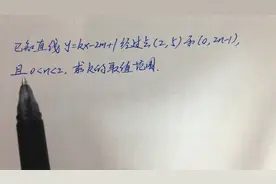 已知直线 y=kx-2m+1 经过点(2,5)和(0,2n-1),
且 0<n<2, 求k的取值范围.